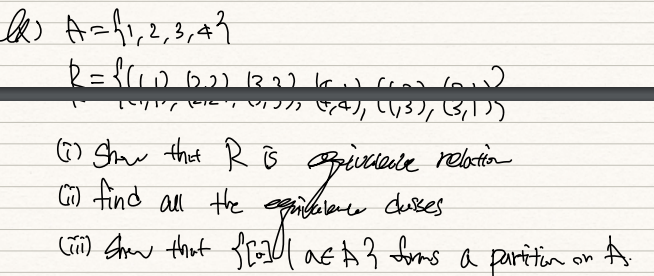 Ex) A = {1, 2, 3, 4}
R = {(1,1), (2,2), (3,3), (4,4), (1,3), (3,1)}
(i) Show that R is equivalence relation
(ii) find all the equivalence classes
(iii) show that {[a] | a ∈ A} forms a partition on A.